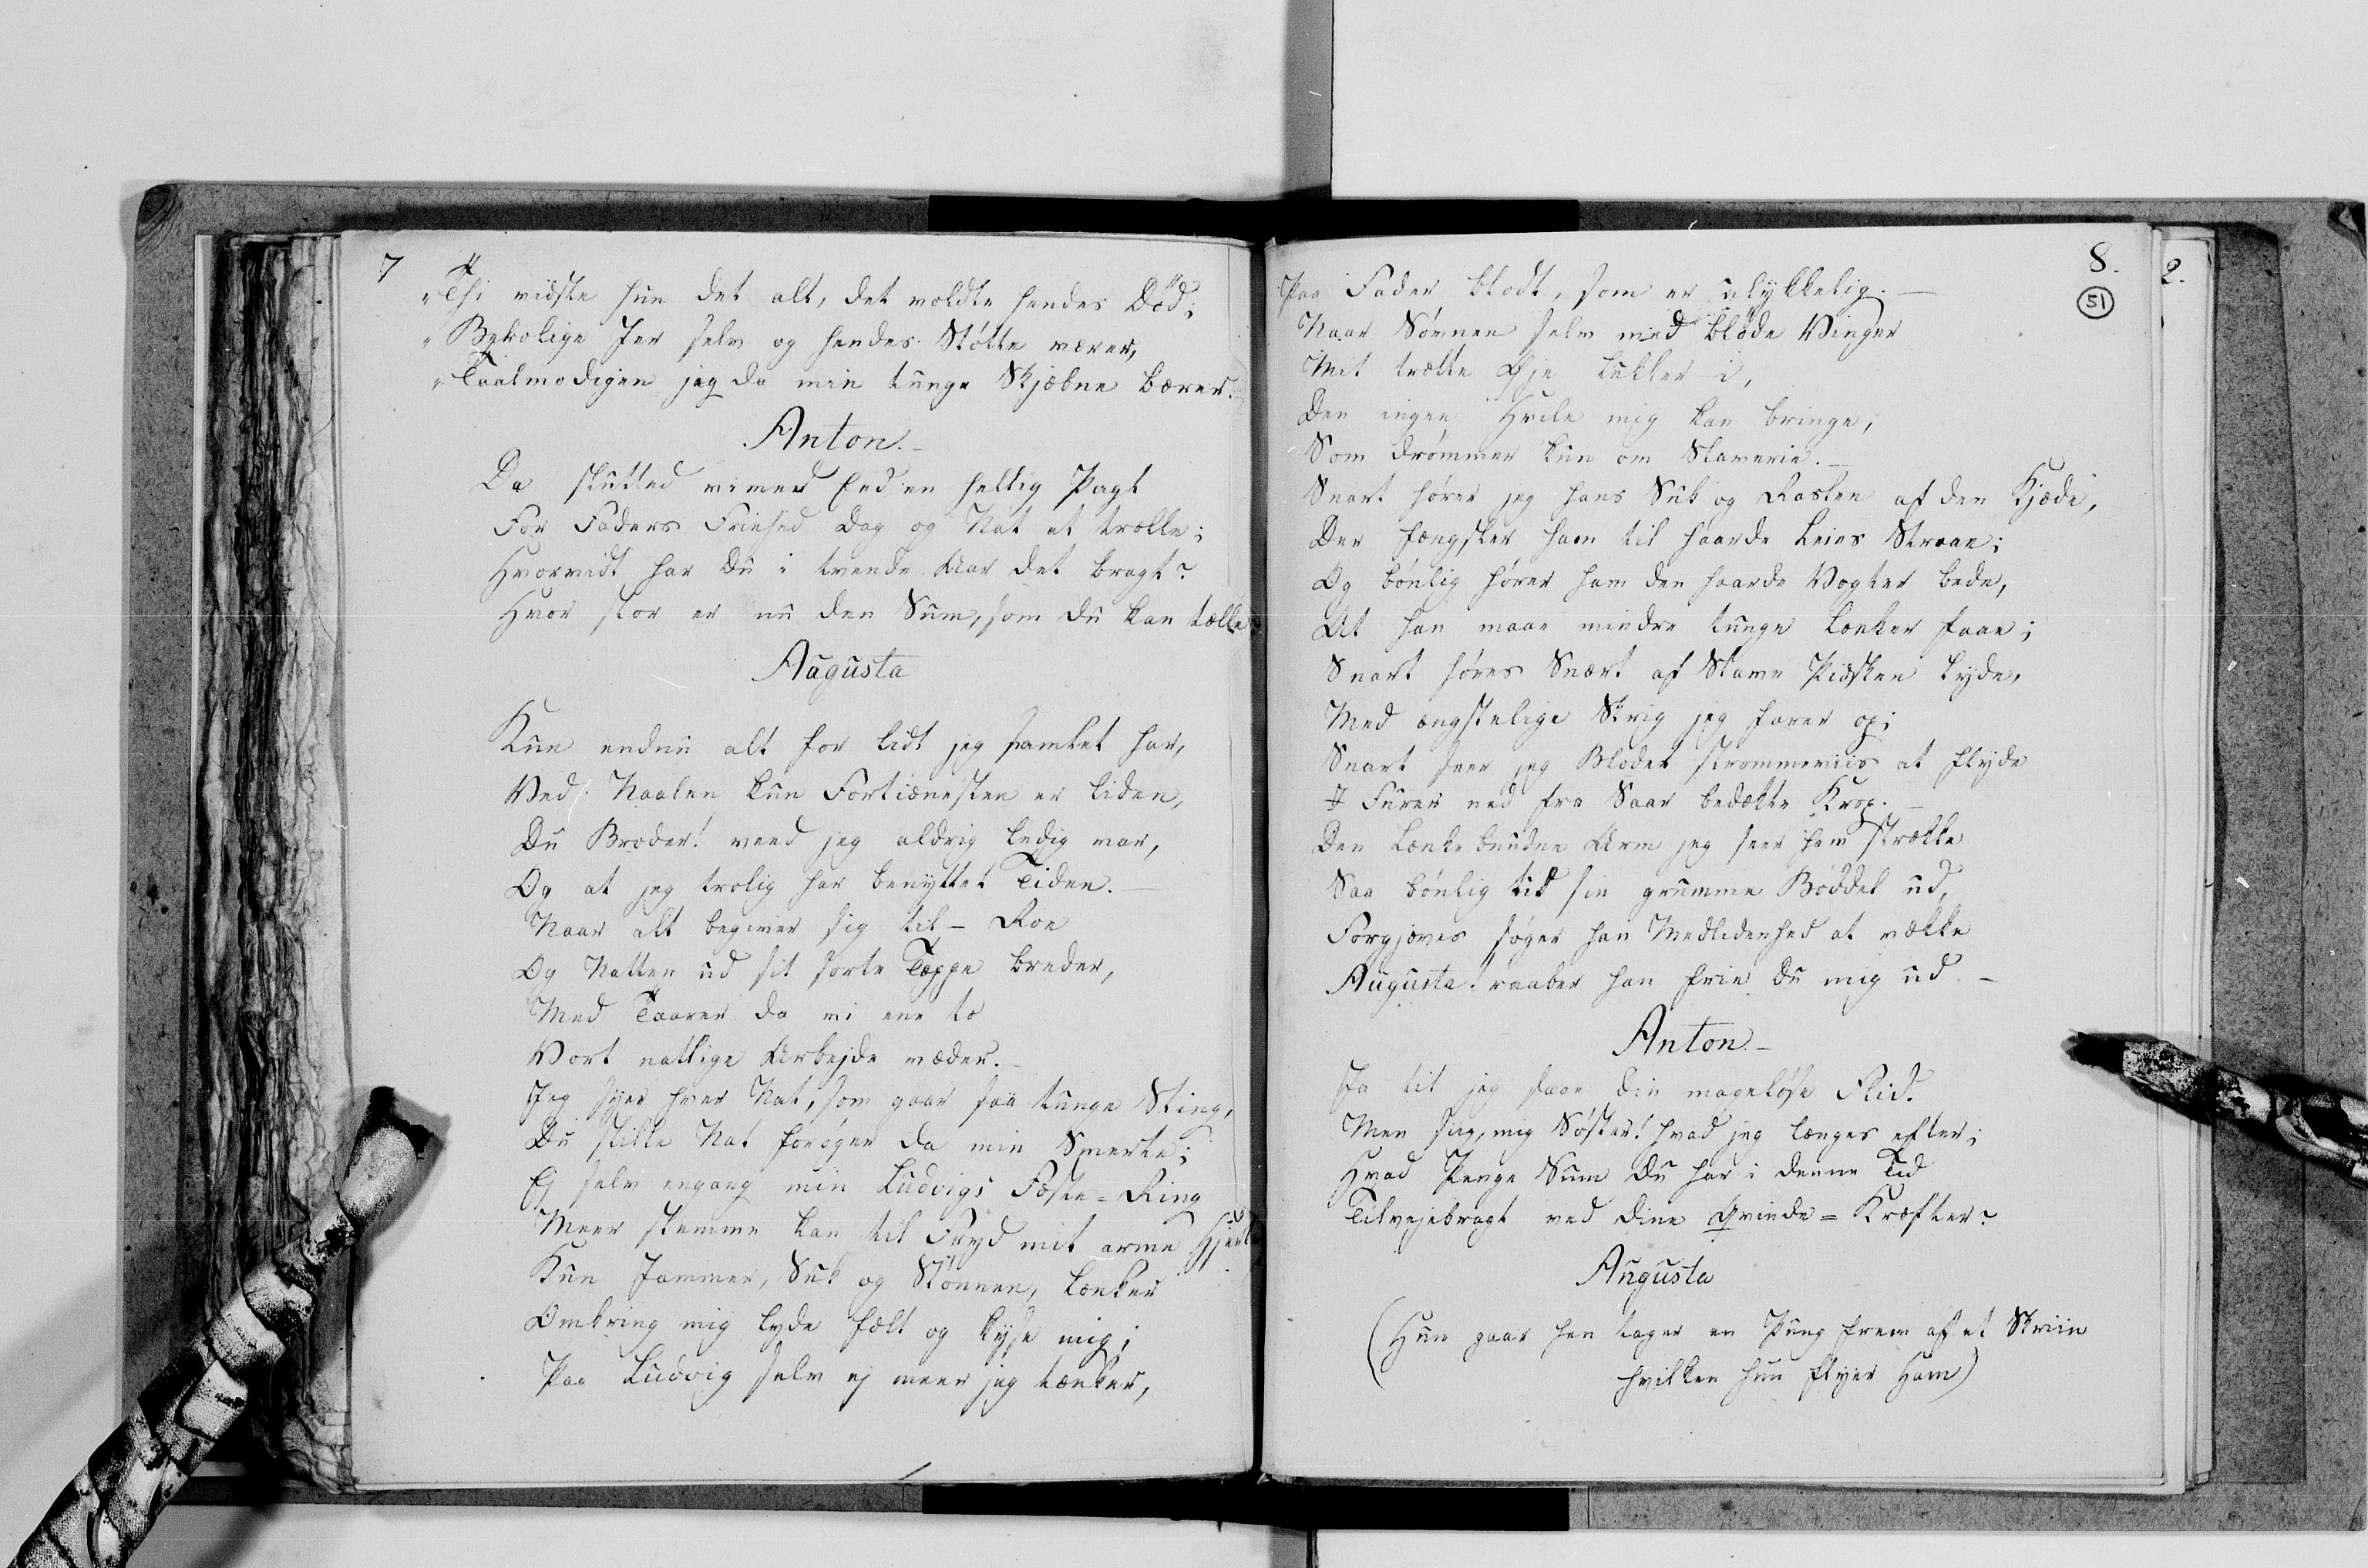 7
"Thi vidste hun det alt, det voldte hendes Död;
"Berolige Jer selv og hendes Stötte værer,
"Taalmodigen jeg da min tunge Skjæbne bærer.
Anton.
Da slutted vi med Eed en hellig Pagt
For Faders Friehed Dag og Nat at trælle;
Hvorvidt har Du i tvende Aar det bragt?
Hvor stor er nu den Sum, som Du kan tælle?
Augusta
Kun endnu alt for lidt jeg samlet har,
Ved Naalen kun Fortiænesten er liden,
Du Broder! veed jeg aldrig ledig var,
Og at jeg trolig har benyttet Tiden. —
Naar alt begiver sig til - Roe
Og Natten ud sit sorte Tæppe breder,
Med Taarer da vi ene to
Vort natlige Arbejde væder. -
Jeg syer hver Nat, som gaar saa tunge Sting,
Du stille Nat forøger da min Smerte;
Ej selv engang min Ludvigs Fæste=Ring
Meer stemme kan til Fryd mit arme Hjerte
Kun Jammer, Suk og Stönnen, Lænker
Omkring mig lyde fælt og kyse mig;
Paa Ludvig selv ej meer jeg tænker,
8.
51
2.
Paa Fader blodt, som er ulykkelig. —
Naar Sövnen selv med blöde Vinger
Mit trætte Øje lukker i,
Den ingen Hvile mig kan bringe,
Som drømmer kun om Slaverie. —
Snart hører jeg hans Suk og Raslen af den Kjæde,
Der fængsler ham til haarde Leies Straae;
Og bönlig hører ham den haarde Vogter bede,
At han maae mindre tunge Lænker faae;
Snart høres Snært af Slave Pidsken lyde,
Med ængstelige Skrig jeg farer op;
Snart seer jeg Blodet strømmeviis at flyde
I Furer ned fra Saar bedækte Krop. -
Den Lænkebundne Arm jeg seer ham strække
Saa bönlig til sin grumme Böddel ud,
Forgjæves søger han Medlidenhed at vække
Augusta! raaber han frie Du mig ud -
Anton. -
Ja tit jeg saae din mageløse Flid.
Men siig, mig Søster! hvad jeg længes efter;
Hvad Penge Sum Du har i denne Tid
Tilvejebragt ved dine Qvinde=Kræfter?
Augusta
(Hun gaar hen tager en Pung frem af et Skriin
hvilken hun flyer Ham)